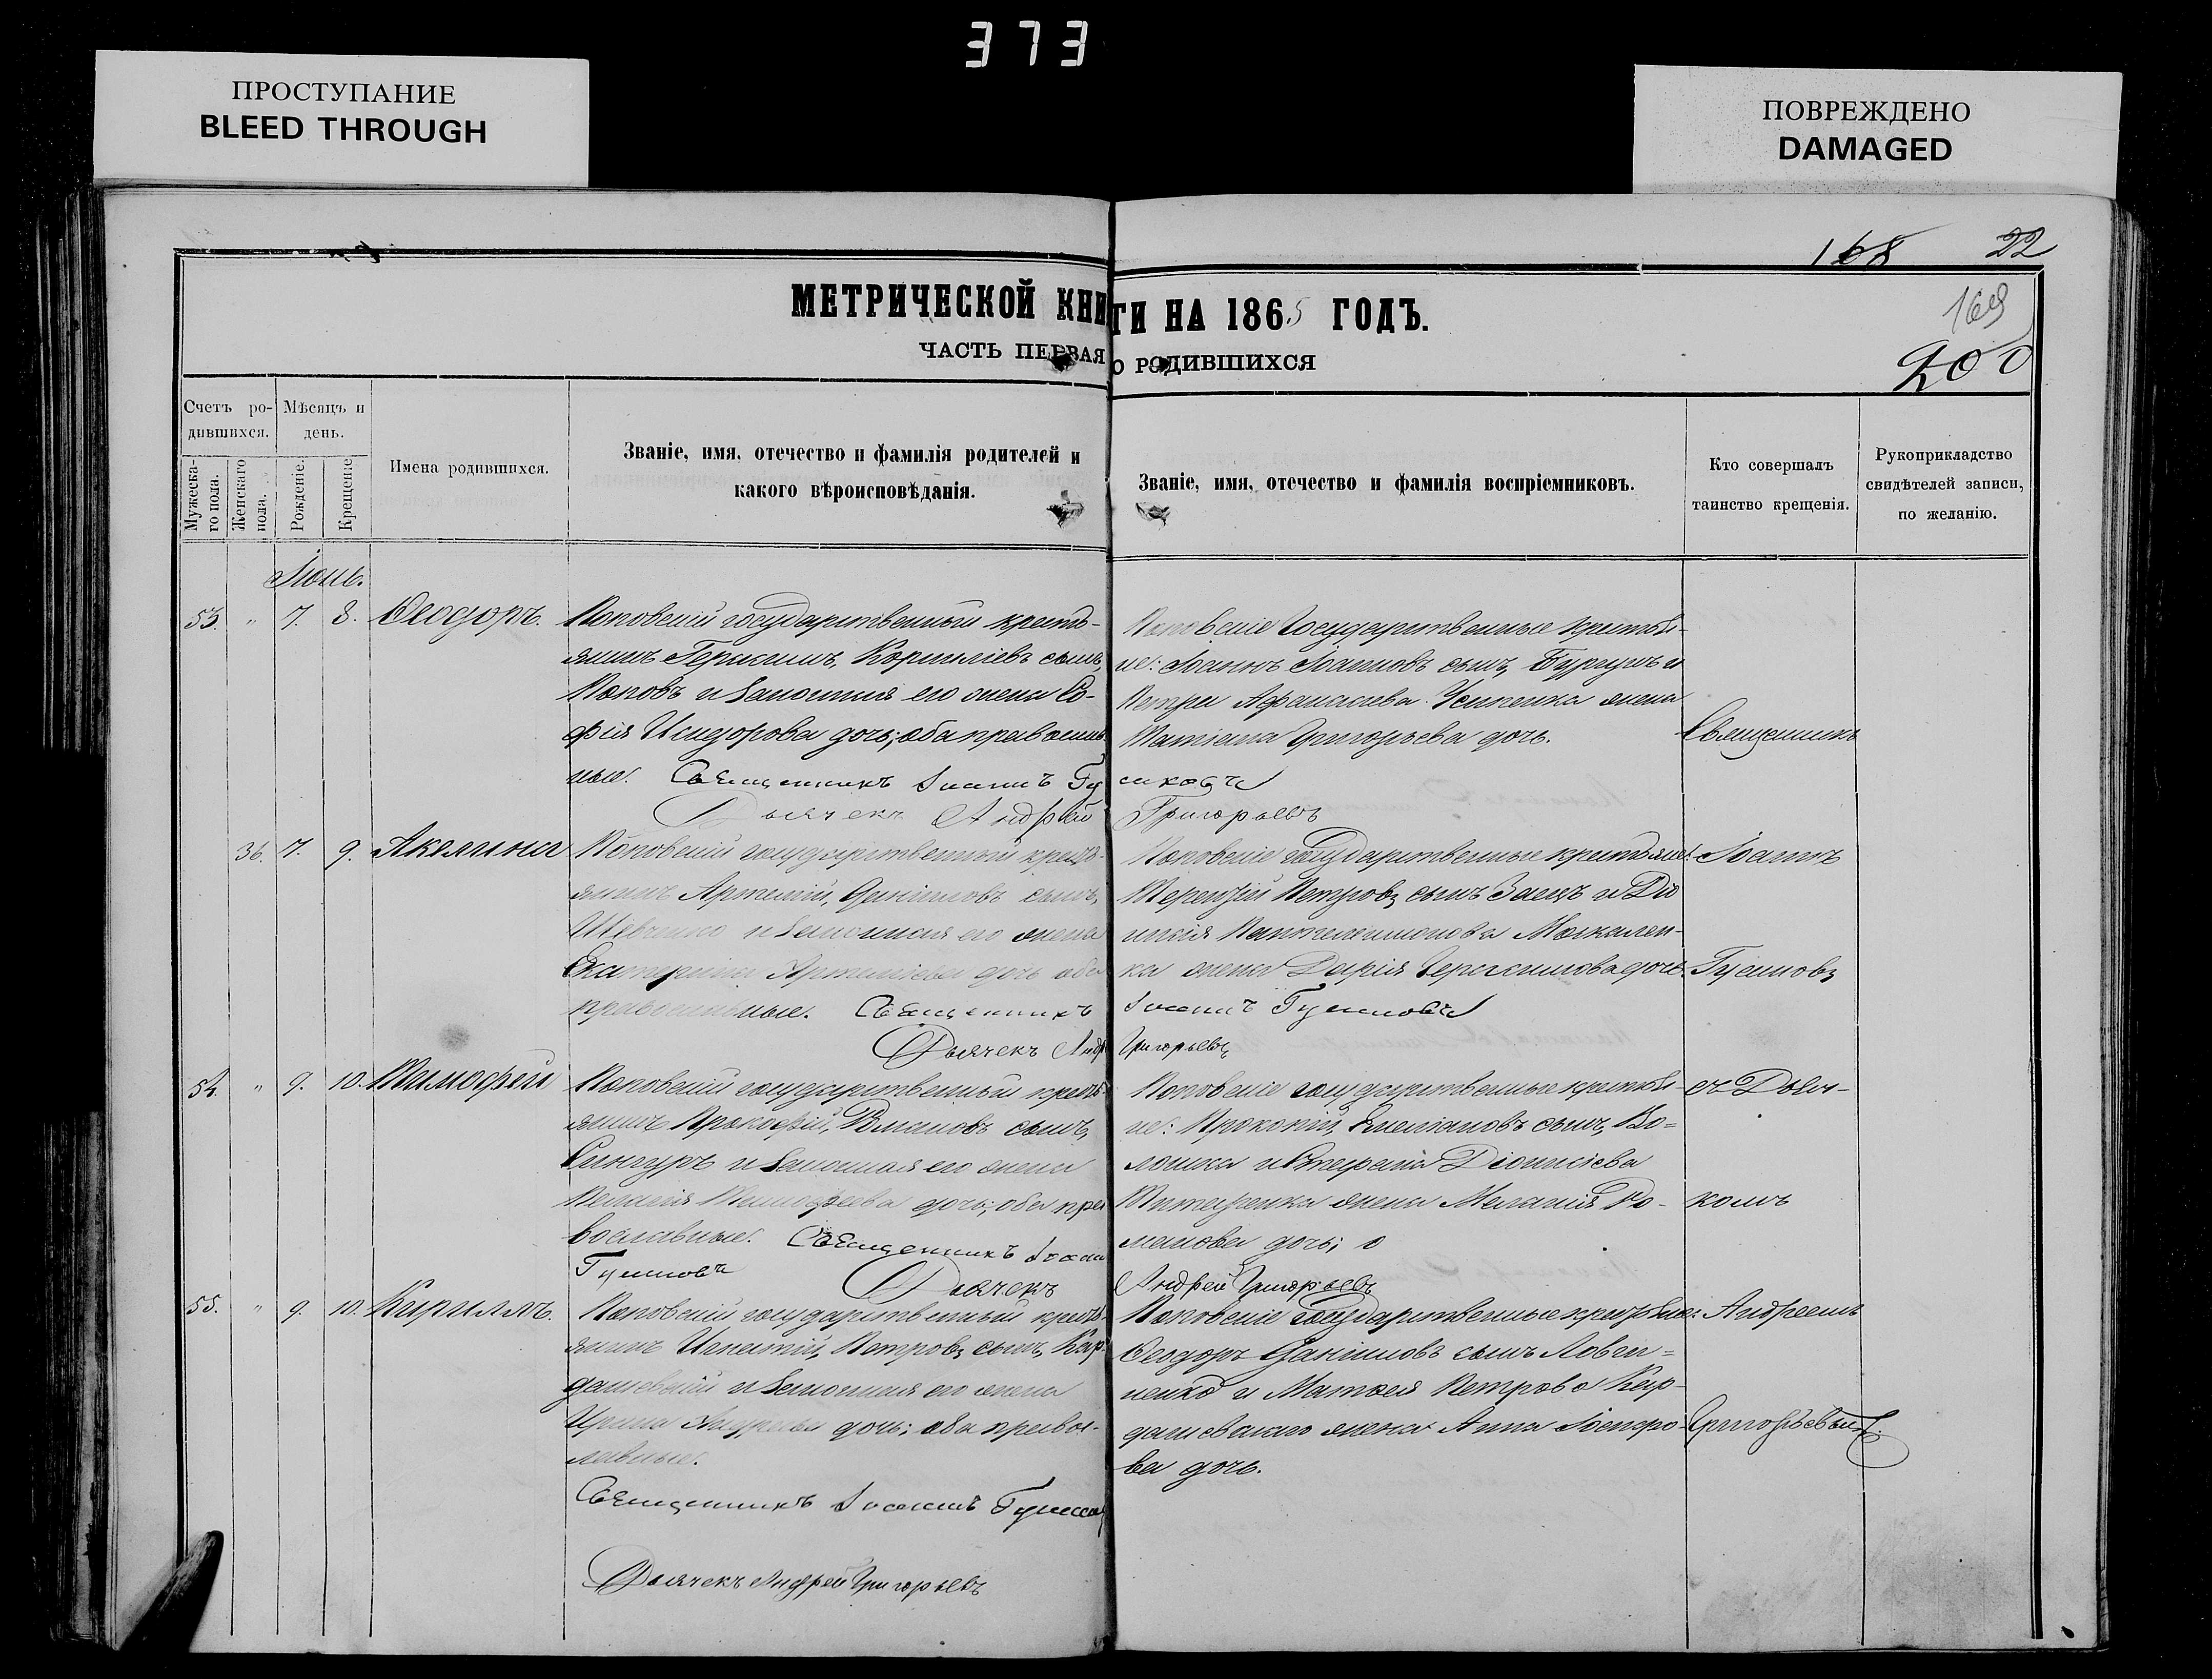 373
ПРОСТУПАНИЕ
BLEED THROUGH
ПОВРЕЖДЕНО
DAMAGED
168 22
169
200
МЕТРИЧЕСКОЙ КНИГИ НА 1865 ГОДЪ.
ЧАСТЬ ПЕРВАЯ О РОДИВШИХСЯ
Счетъ ро-
дившихся.
Мужеска-
го пола.
Женскаго
пола.
Мѣсяцъ и
день.
Рожденіе.
Крещеніе
Имена родившихся.
Званіе, имя, отечество и фамилія родителей и
какого вѣроисповѣданія.
Званіе, имя, отечество и фамилія воспріемниковъ.
Кто совершалъ
таинство крещенія.
Рукоприкладство
свидѣтелей записи,
по желанію.
Іюнь.
53. " 7. 8. Ѳеодоръ.
Поповскій государственный кресть-
янинъ Герасимъ, Корниліевъ сынъ,
Поповъ и законная его жена Со-
фія Исидорова дочь; оба православ-
ные. Священникъ Іоаннъ
Дьячекъ Андрей Григорьевъ
Поповскіе Государственные крестья-
не: Іоаннъ Іоанновъ сынъ, и
Петра Афанасіева жена
Татіана Григорьева дочь.
36. 7. 9. Акилина
Поповскій государственный кресть-
янинъ Артемій, Даніиловъ сынъ,
Шевченко и законная его жена
Екатерина дочь оба
православные. Священникъ Іоаннъ
Дьячекъ Андрей Григорьевъ
Поповскіе государственные крестьяне:
Терентій Петровъ сынъ Заецъ и Діо-
нисія Пантелеимонова Москален-
ка жена Дарія Герасимова дочь.
54. " 9. 10. Тимофей
Поповскій государственный кресть-
янинъ Прокофій, сынъ,
и законная его жена
Тимофеева дочь; оба пра-
вославные. Священникъ Іоаннъ
Дьячекъ Андрей Григорьевъ
Поповскіе государственные крестья-
не: Прокопій, Емеліановъ сынъ, Во-
лошка и Стефана Діонисіева
жена Меланія Ро-
манова дочь;
55. " 9. 10. Кириллъ.
Поповскій государственный кресть-
янинъ Игнатій, Петровъ сынъ, Кар-
дашевскій и законная его жена
Ирина дочь; оба правос-
лавные.
Священникъ Іоаннъ
Дьячекъ Андрей Григорьевъ
Поповскіе государственные крестьяне:
Ѳеодоръ Даніиловъ сынъ
и Матѳея Петрова Кар-
дашевскаго жена Анна
ва дочь.
Священникъ
Іоаннъ
съ Дьяч-
комъ
Андреемъ
Григорьевымъ.